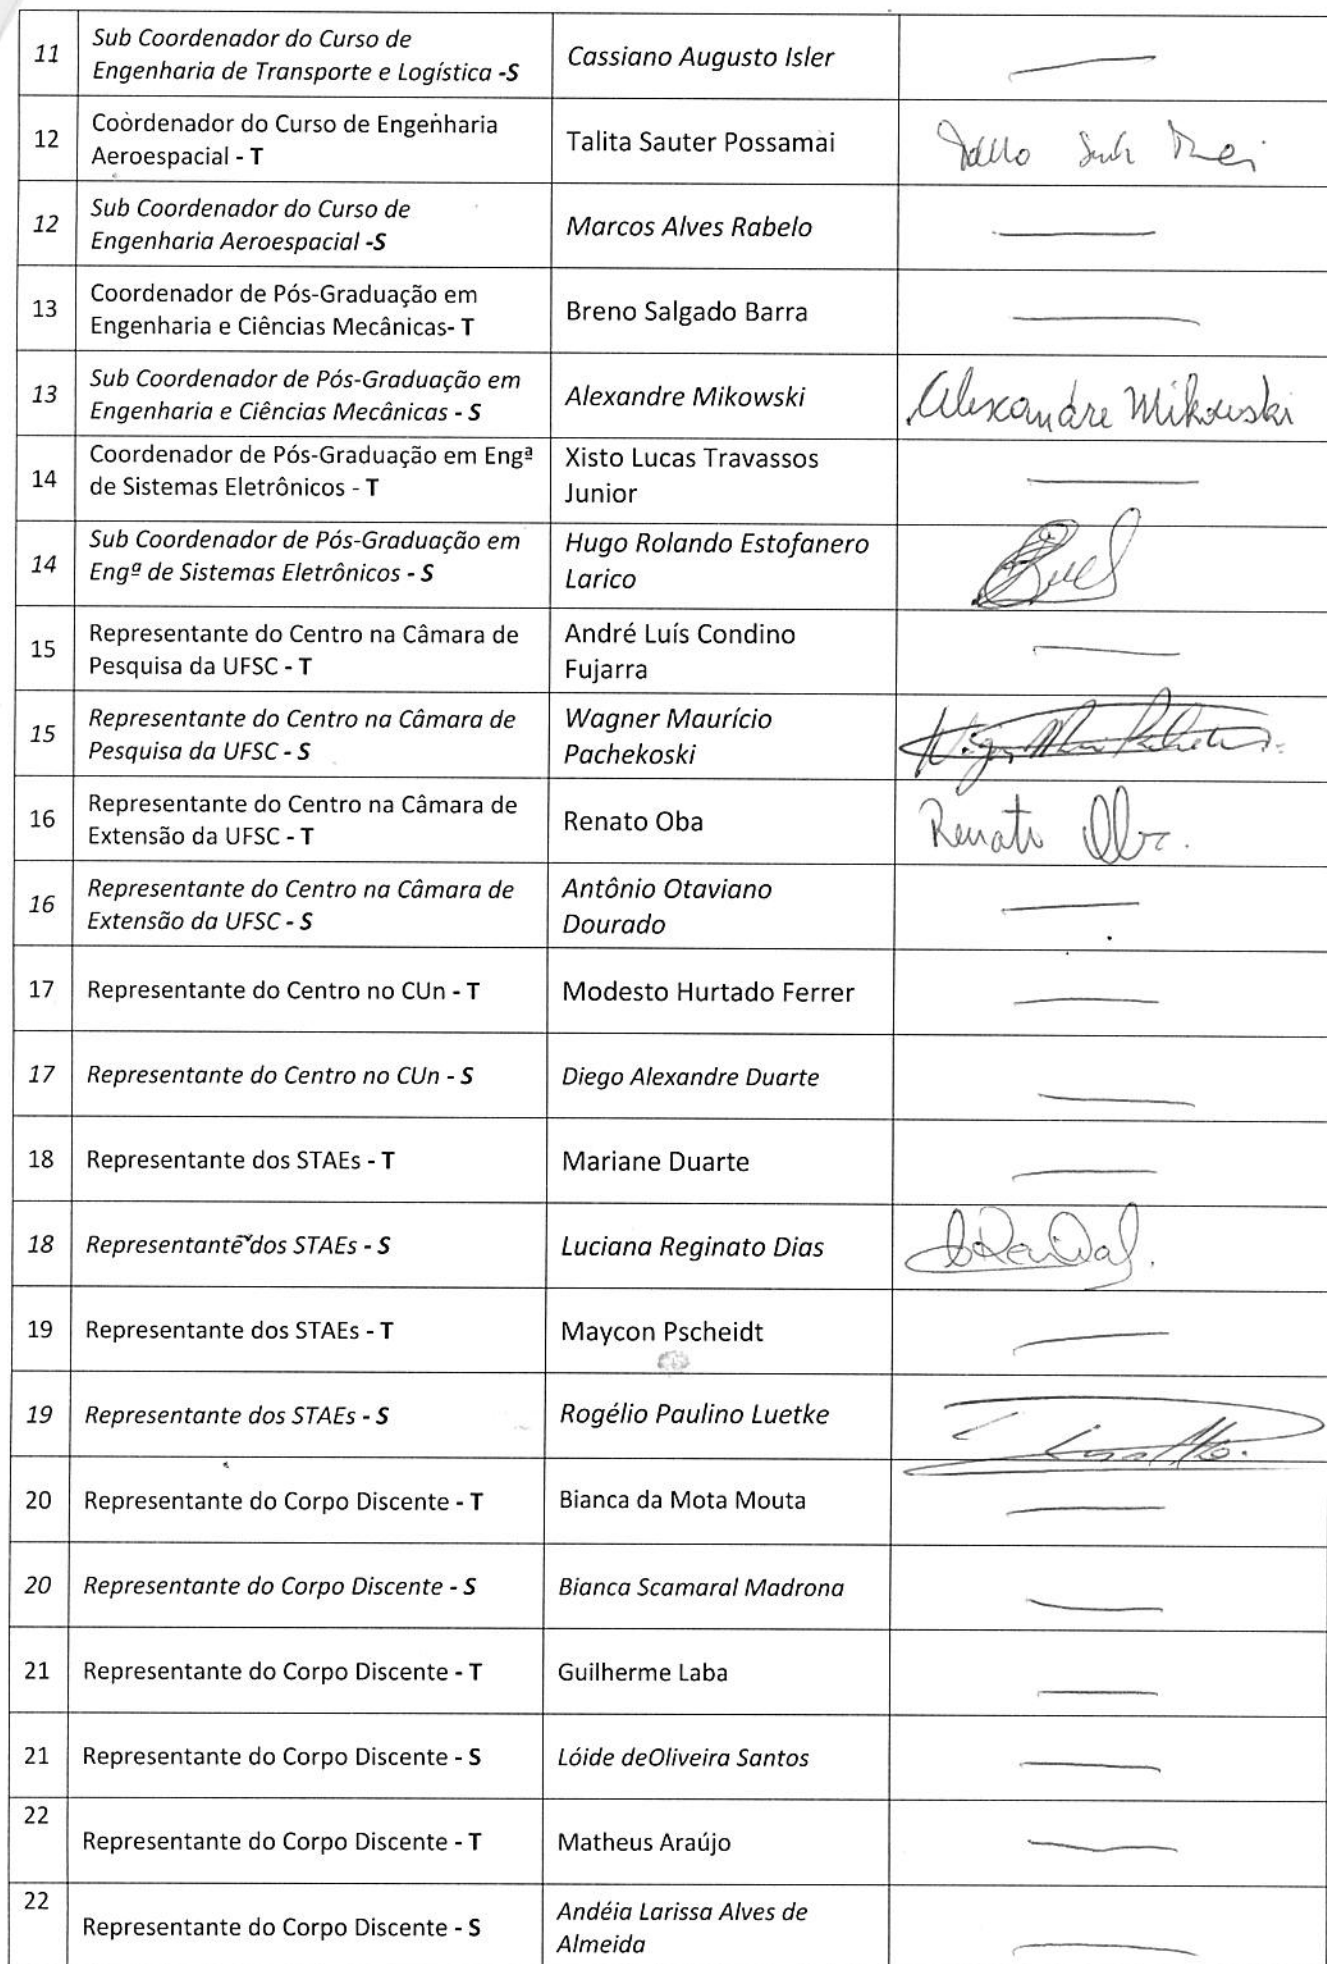 11
Sub Coordenador do Curso de
Engenharia de Transporte e Logística -S
Cassiano Augusto Isler
12
Coordenador do Curso de Engenharia
Aeroespacial - T
Talita Sauter Possamai
12
Sub Coordenador do Curso de
Engenharia Aeroespacial -S
Marcos Alves Rabelo
13
Coordenador de Pós-Graduação em
Engenharia e Ciências Mecânicas- T
Breno Salgado Barra
13
Sub Coordenador de Pós-Graduação em
Engenharia e Ciências Mecânicas - S
Alexandre Mikowski
Alexandre Mikowski
14
Coordenador de Pós-Graduação em Engª
de Sistemas Eletrônicos - T
Xisto Lucas Travassos
Junior
14
Sub Coordenador de Pós-Graduação em
Engª de Sistemas Eletrônicos - S
Hugo Rolando Estofanero
Larico
15
Representante do Centro na Câmara de
Pesquisa da UFSC - T
André Luís Condino
Fujarra
15
Representante do Centro na Câmara de
Pesquisa da UFSC - S
Wagner Maurício
Pachekoski
16
Representante do Centro na Câmara de
Extensão da UFSC - T
Renato Oba
Renato
16
Representante do Centro na Câmara de
Extensão da UFSC - S
Antônio Otaviano
Dourado
17
Representante do Centro no CUn - T
Modesto Hurtado Ferrer
17
Representante do Centro no CUn - S
Diego Alexandre Duarte
18
Representante dos STAEs - T
Mariane Duarte
18
Representante dos STAEs - S
Luciana Reginato Dias
19
Representante dos STAEs - T
Maycon Pscheidt
19
Representante dos STAEs - S
Rogélio Paulino Luetke
20
Representante do Corpo Discente - T
Bianca da Mota Mouta
20
Representante do Corpo Discente - S
Bianca Scamaral Madrona
21
Representante do Corpo Discente - T
Guilherme Laba
21
Representante do Corpo Discente - S
Lóide deOliveira Santos
22
Representante do Corpo Discente - T
Matheus Araújo
22
Representante do Corpo Discente - S
Andéia Larissa Alves de
Almeida